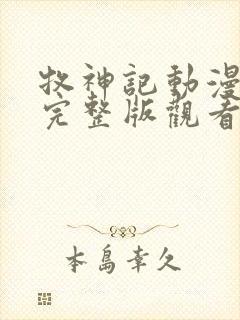 牧神記動漫
完整版觀看
本島幸久